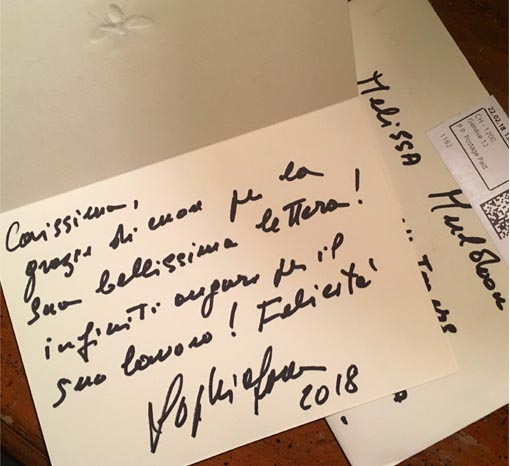 Carissima,
grazie di cuore per la
sua bellissima lettera!
infiniti auguri per il
suo lavoro! Felicità
2018
Melissa
22.02.18
CH - 1200
Genève 12
P.P. Postage Paid
1162